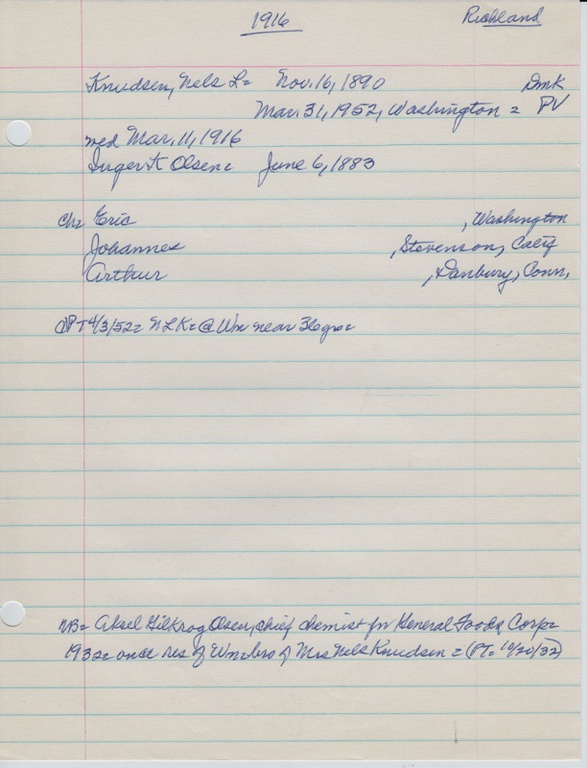 1916
Richland
Knudsen, Nels L= Nov. 16, 1890 Dmk
Mar. 31, 1952, Washington = PV
med Mar. 11, 1916
Inger K Olsen= June 6, 1883
Ch= Eric , Washington
Johannes , Stevenson, Calif
Arthur , Danbury, Conn.
PT 4/3/52= N L K= @ Wn near 3
NB= Aksel Olsen, chief chemist for General Foods Corp=
1932= once res of Wn=bro of Mrs Nels Knudsen = (PT= 10/20/32)